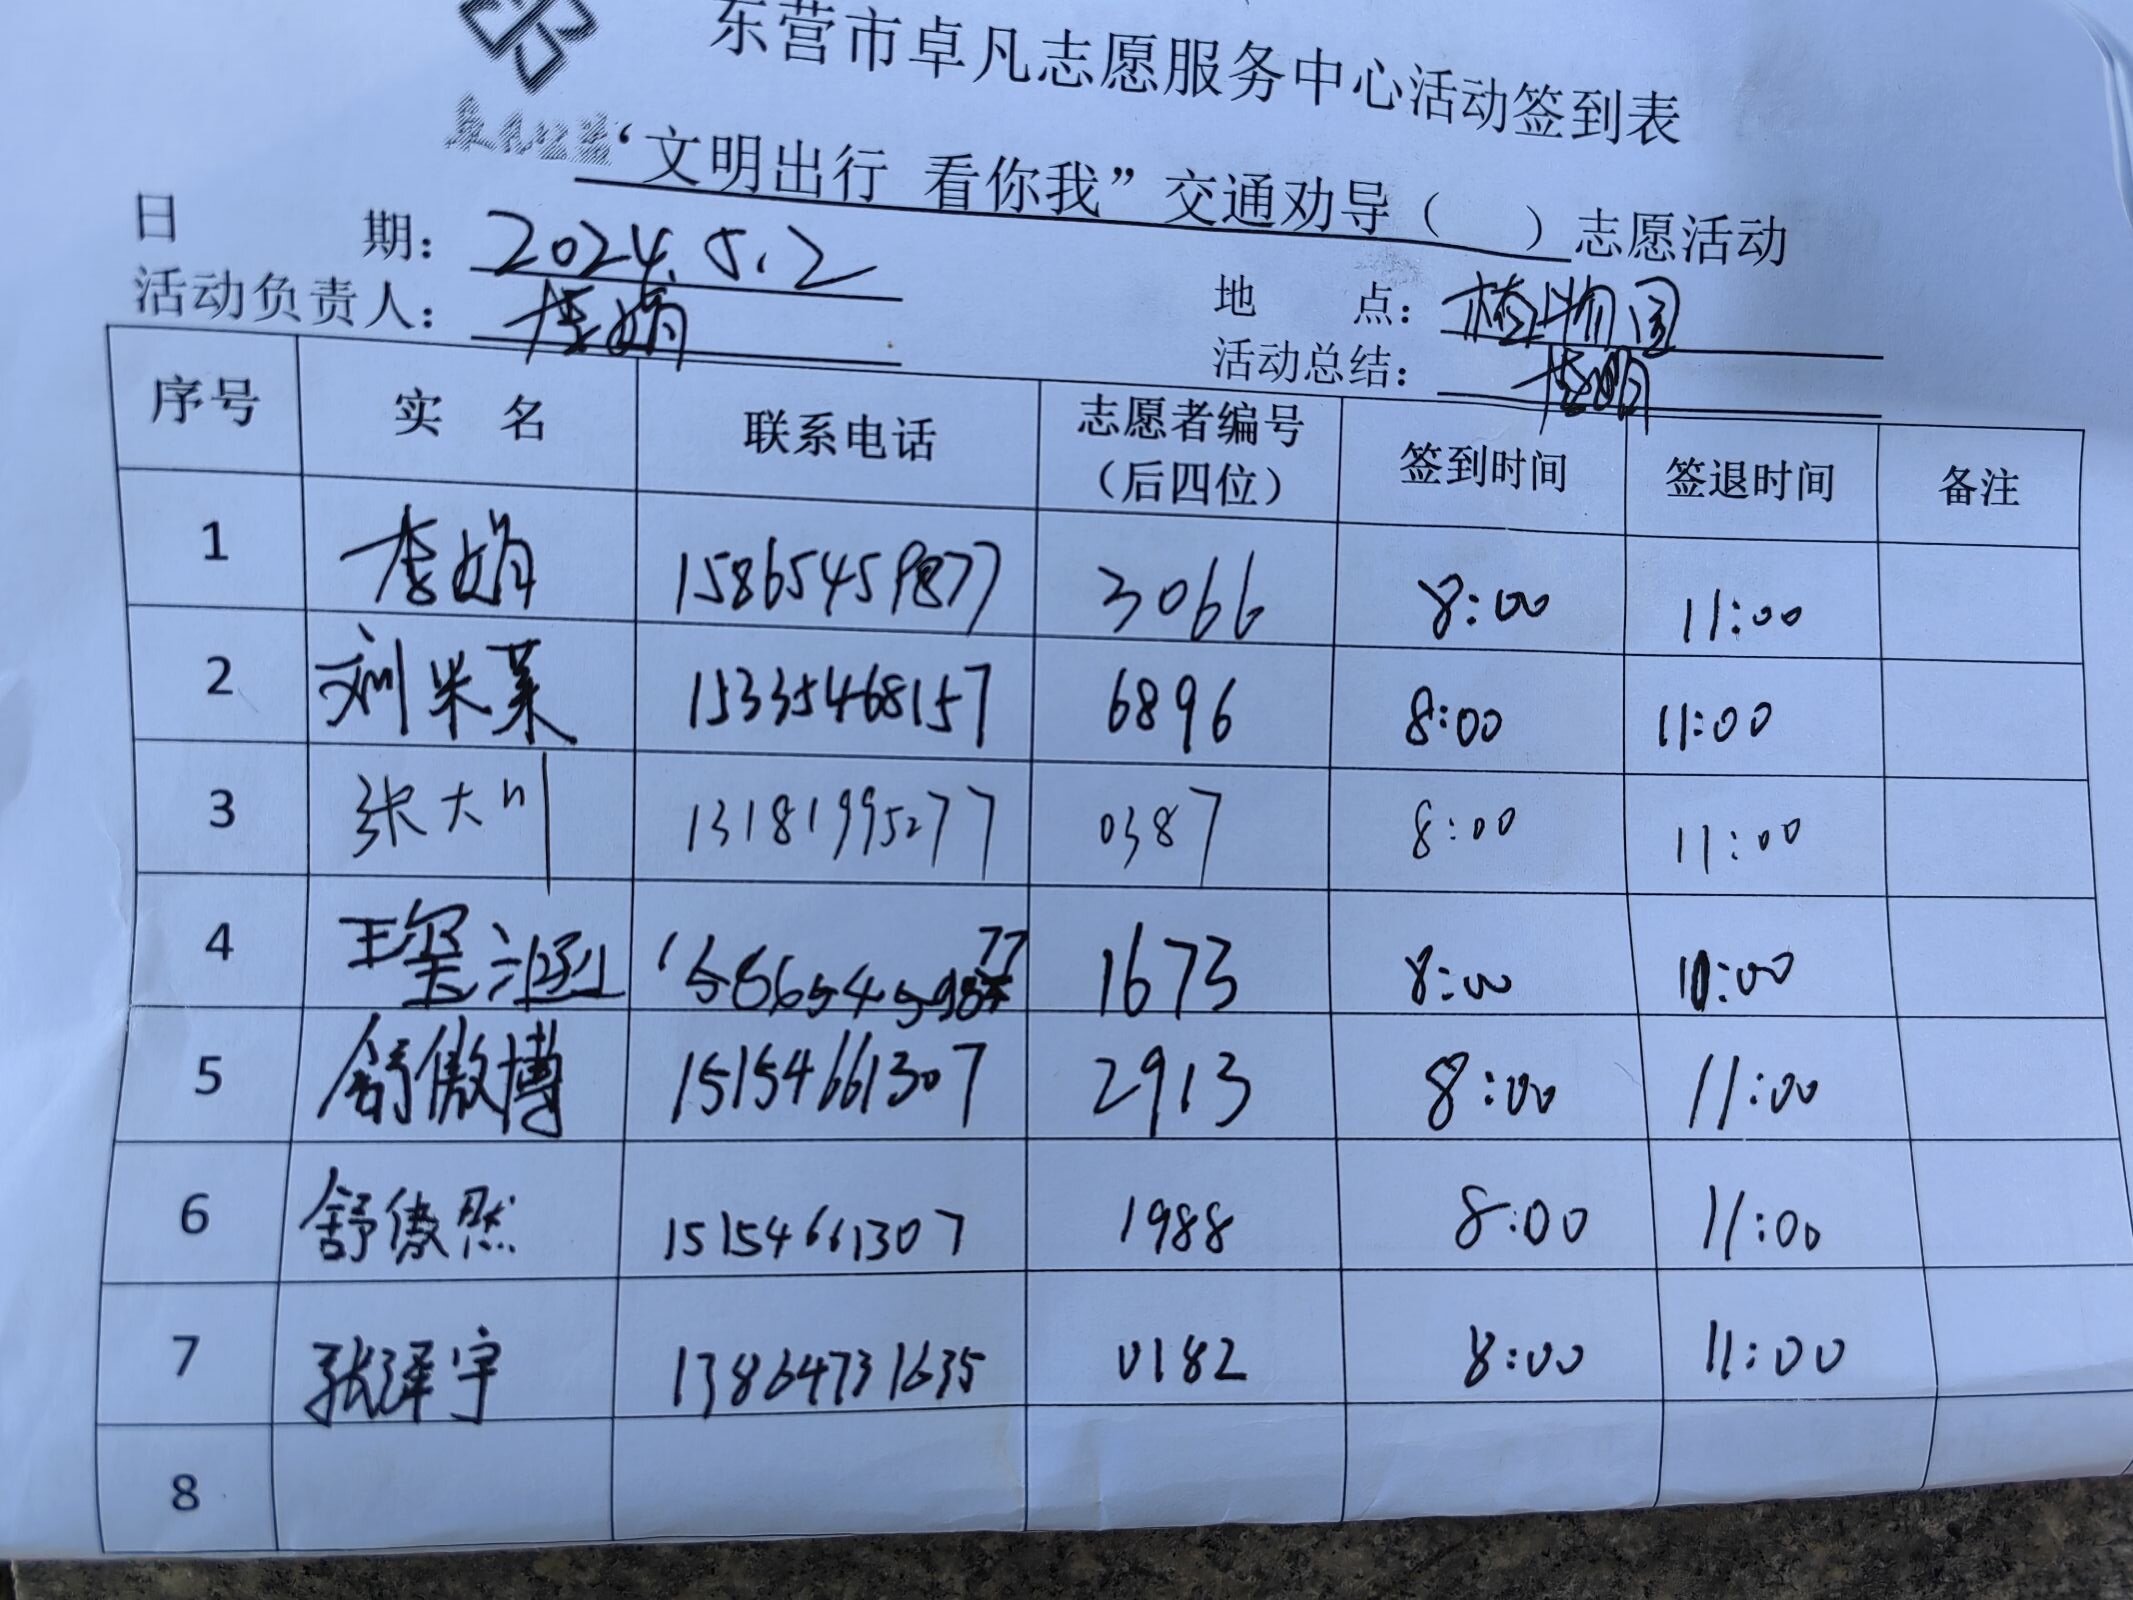 东营市卓凡志愿服务中心活动签到表
“文明出行 看你我”交通劝导（ ）志愿活动
日 期：2024.5.2
地 点：植物园
活动负责人：李娟
活动总结：李娟
序号 实 名 联系电话 志愿者编号（后四位） 签到时间 签退时间 备注
1 李娟 15865459877 3066 8:00 11:00
2 刘米莱 15335468157 6896 8:00 11:00
3 张大川 13181995277 0387 8:00 11:00
4 王玺涵 15865459877 1673 8:00 11:00
5 舒傲博 15154661307 2913 8:00 11:00
6 舒傲然 15154661307 1988 8:00 11:00
7 张泽宇 13864731635 0182 8:00 11:00
8